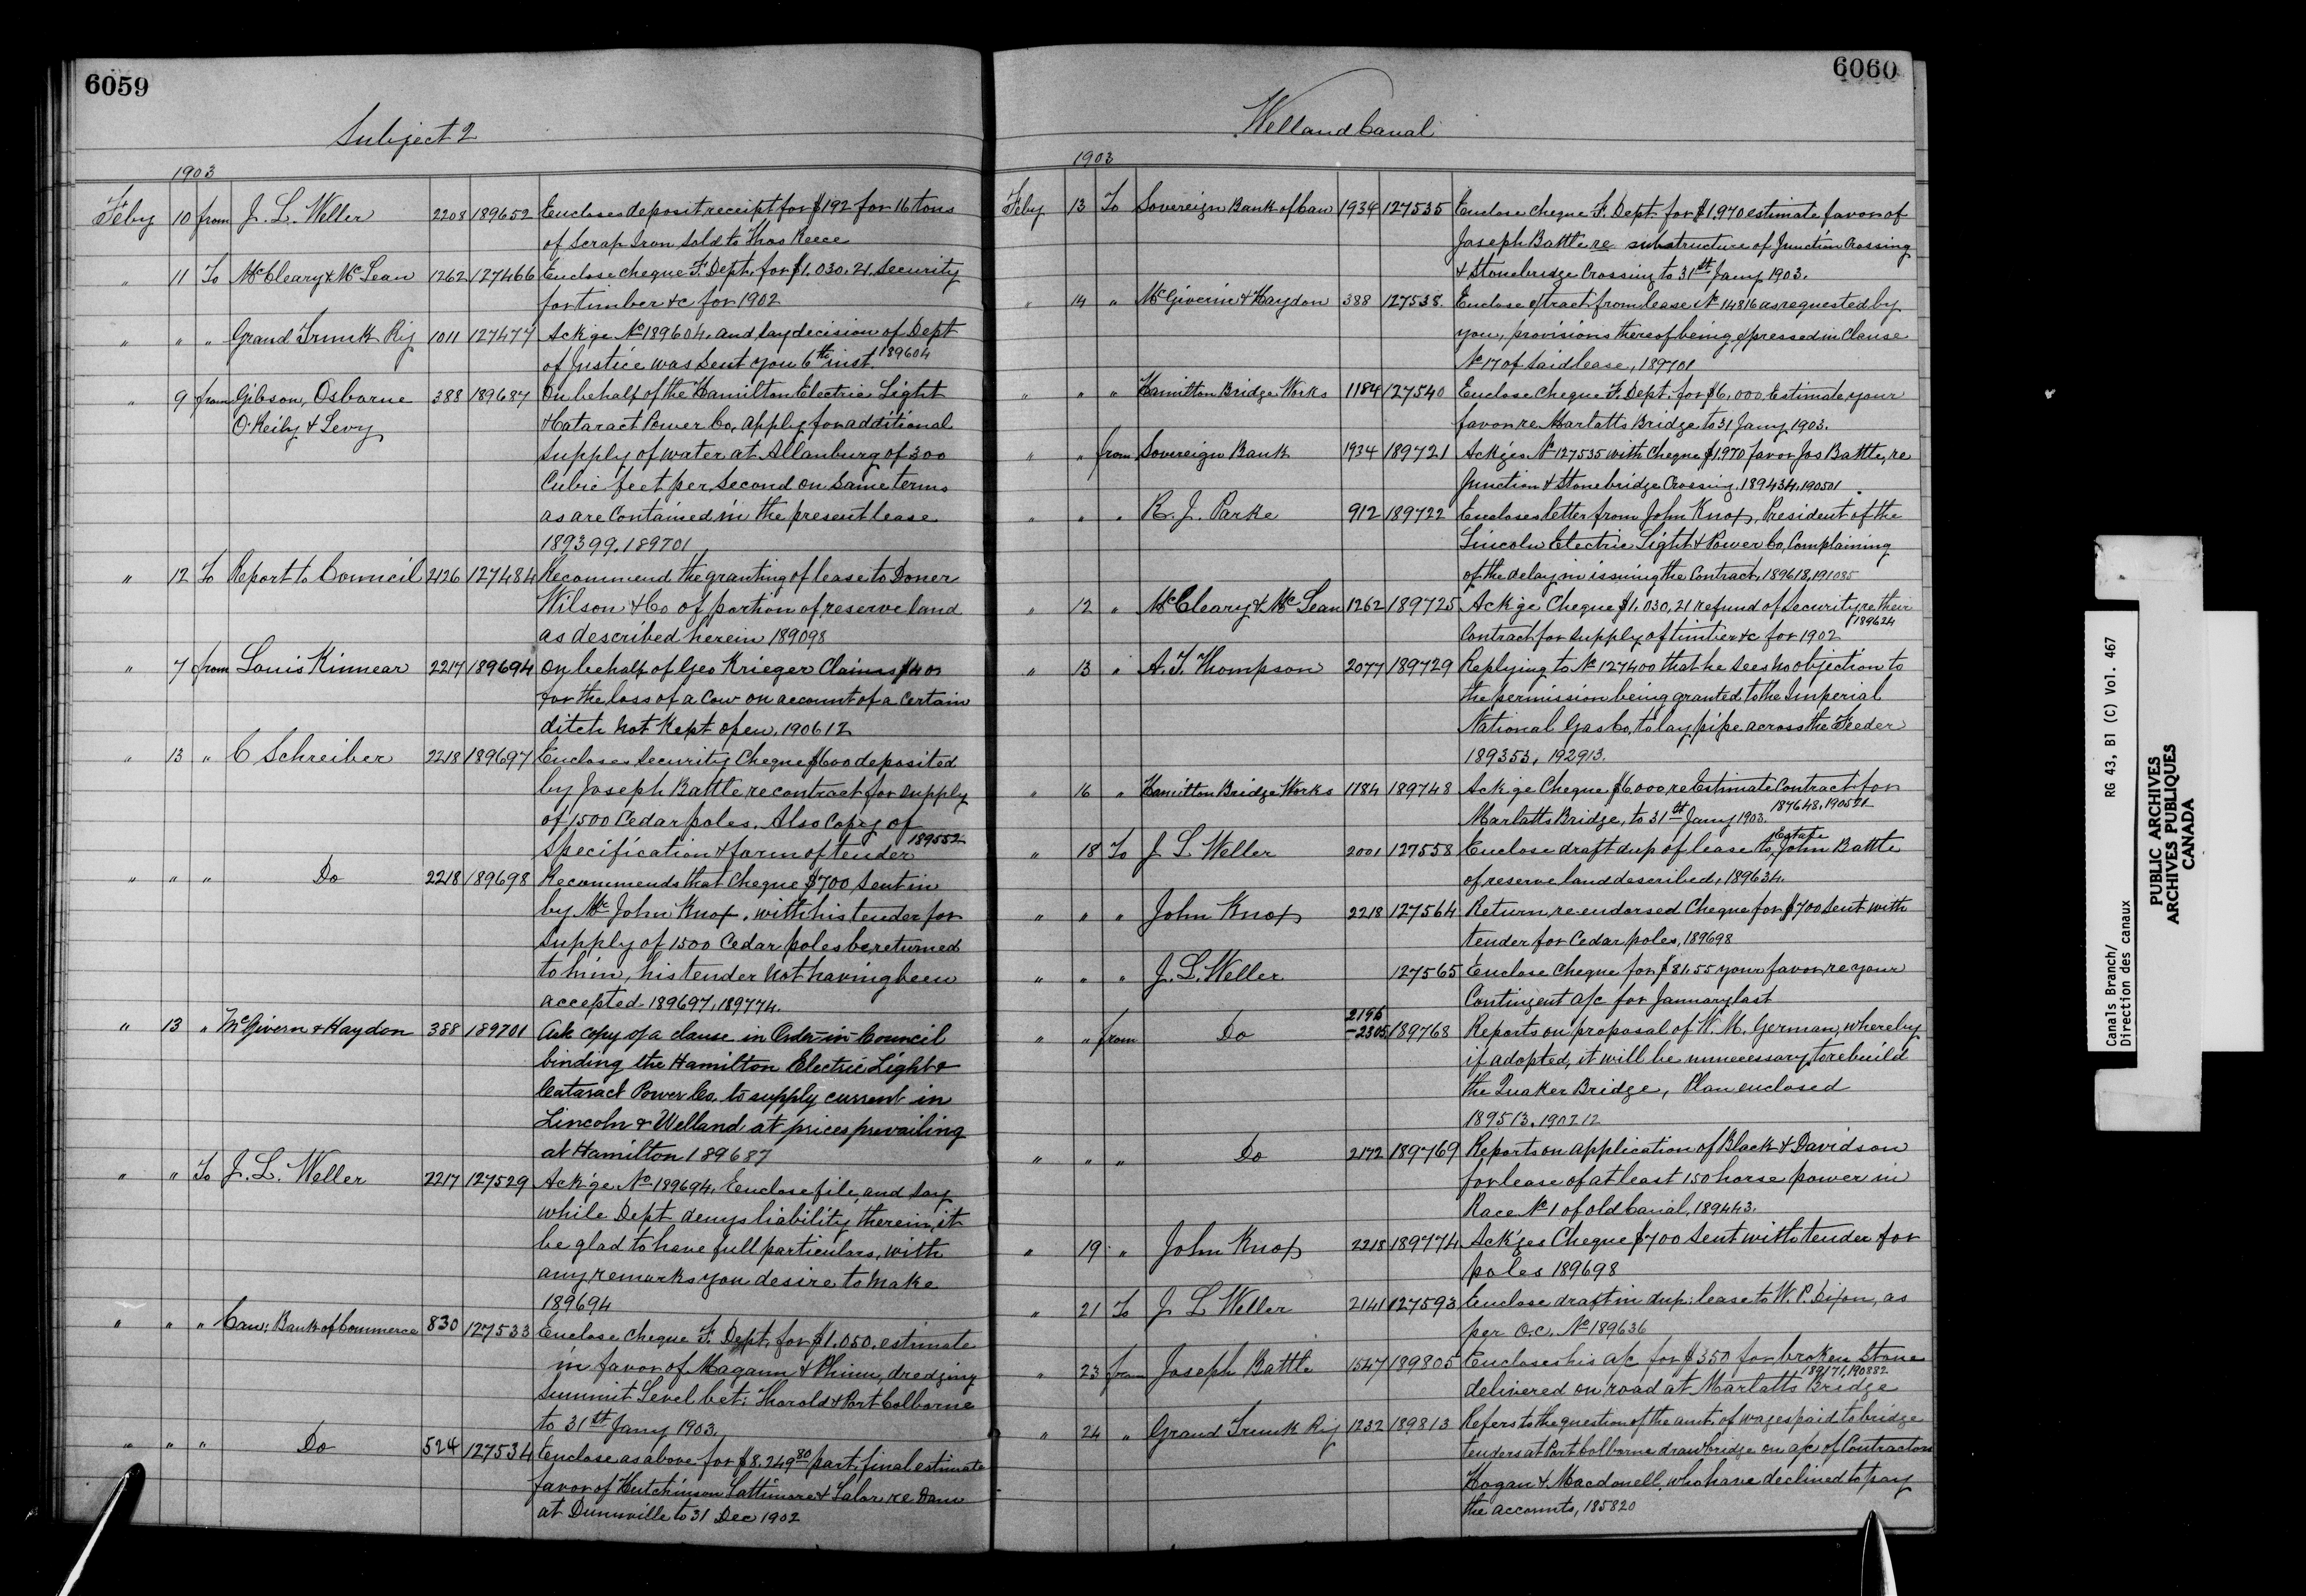 6059
Subject 2
1903
Feby 10 from J. L. Weller 2208 189652 Encloses deposit receipt for $192 for 16 tons
of Scrap Iron sold to Thos Reece
" 11 To McCleary & McLean 1262 127466 Enclose cheque F. Dept. for $1,030.21 security
for timber &c for 1902
" " " Grand Trunk Ry 1011 127477 Ackge No 189604, and say decision of Dept
of Justice was sent you 6th inst. 189604
" 9 from Gibson, Osborne 388 189687 On behalf of the Hamilton Electric Light
O'Reily & Levy & Cataract Power Co, apply for additional
supply of water at Allanburg of 300
Cubic feet per second on same terms
as are contained in the present lease
189399, 189701
" 12 To Report to Council 2126 127484 Recommend the granting of lease to Doner
Wilson & Co of portion of reserve land
as described herein 189098
" 7 from Louis Kinnear 2217 189694 On behalf of Geo Krieger Claims $40
for the loss of a Cow on account of a certain
ditch not kept open, 190612
" 13 " C Schreiber 2218 189697 Encloses Security Cheque $600 deposited
by Joseph Battle re contract for supply
of 1500 Cedar poles. Also Copy of
Specification & form of tender 189552
" " " Do 2218 189698 Recommends that Cheque $700 sent in
by Mr John Knox, with his tender for
supply of 1500 Cedar poles be returned
to him, his tender not having been
accepted 189697, 189774.
" 13 " McGivern & Haydon 388 189701 Ask copy of a clause in Order-in-Council
binding the Hamilton Electric Light &
Cataract Power Co. to supply current in
Lincoln & Welland at prices prevailing
at Hamilton 189687
" " To J. L. Weller 2217 127529 Ackge No 189694. Enclose file, and say
while Dept denys liability therein, it
be glad to have full particulars, with
any remarks you desire to make
189694
" " " Can: Bank of Commerce 830 127533 Enclose cheque F. Dept. for $1,050. estimate
in favor of Magann & Phinn, dredging
Summit Level bet: Thorold & Port Colborne
to 31st Jany 1903.
" " " Do 524 127534 Enclose as above for $8,249.80 part final estimate
favor of Hutchinson Lattimore & Lalor re Dam
at Dunnville to 31 Dec 1902
6060
Welland Canal
1903
Feby 13 To Sovereign Bank of Can 1934 127535 Enclose cheque F. Dept for $1,970 estimate favor of
Joseph Battle re substructure of Junction Crossing
& Stonebridge Crossing to 31st Jany 1903.
" 14 " McGiverin & Haydon 388 127538. Enclose extract from lease No 14816 as requested by
you, provisions thereof being expressed in Clause
No 17 of said lease, 189701
" " " Hamilton Bridge Works 1184 127540 Enclose cheque F. Dept. for $6,000. Estimate, your
favor re Marlatts Bridge to 31 Jany 1903.
" " from Sovereign Bank 1934 189721 Ackges No 127535 with Cheque $1,970 favor Jos Battle, re
Junction & Stonebridge Crossing, 189434, 190501
" " " R. J. Parke 912 189722 Encloses letter from John Knox, President of the
Lincoln Electric Light & Power Co, Complaining
of the delay in issuing the Contract, 189618, 191085
" 12 " McCleary & McLean 1262 189725 Ackge Cheque $1,030,21 refund of Security re their
Contract for supply of timber &c for 1902 189624
" 13 " A. T. Thompson 2077 189729 Replying to No 127400 that he sees no objection to
the permission being granted to the Imperial
National Gas Co, to lay pipe across the Feeder
189353, 192913.
" 16 " Hamilton Bridge Works 1784 189748 Ackge Cheque $6,000 re Estimate Contract for
Marlatts Bridge, to 31st Jany 1903. 187648, 190521
" 18 To J L Weller 2001 127558 Enclose draft dup of lease to Estate John Battle
of reserve land described, 189634.
" " " John Knox 2218 127564 Return re-endorsed Cheque for $700 sent with
tender for Cedar poles, 189698
" " " J. L. Weller 127565 Enclose Cheque for $81.55 your favor re your
Contingent a/c for January last
" " from Do 2196-2305 189768 Reports on proposal of W. M. German, whereby
if adopted, it will be unnecessary to rebuild
the Quaker Bridge, Plan enclosed
189513, 190212
" " " Do 2172 189769 Reports on application of Black & Davidson
for lease of at least 150 horse power in
Race No 1 of old Canal, 189443.
" 19 " John Knox 2218 189774 Ackges Cheque $700 sent with tender for
poles 189698
" 21 To J L Weller 2141 127593 Enclose draft in dup: lease to W. P. Dixon, as
per O.C. No 189636
" 23 from Joseph Battle 1547 189805 Encloses his a/c for $350 for broken stone
delivered on road at Marlatts Bridge 189171, 190882
" 24 " Grand Trunk Ry 1232 189813 Refers to the question of the amt. of wages paid to bridge
tenders at Port Colborne drawbridge on a/c of Contractors
Hogan & Macdonell, who have declined to pay
the accounts, 185820
Canals Branch/
Direction des canaux
RG 43, B1 (C) Vol. 467
PUBLIC ARCHIVES
ARCHIVES PUBLIQUES
CANADA